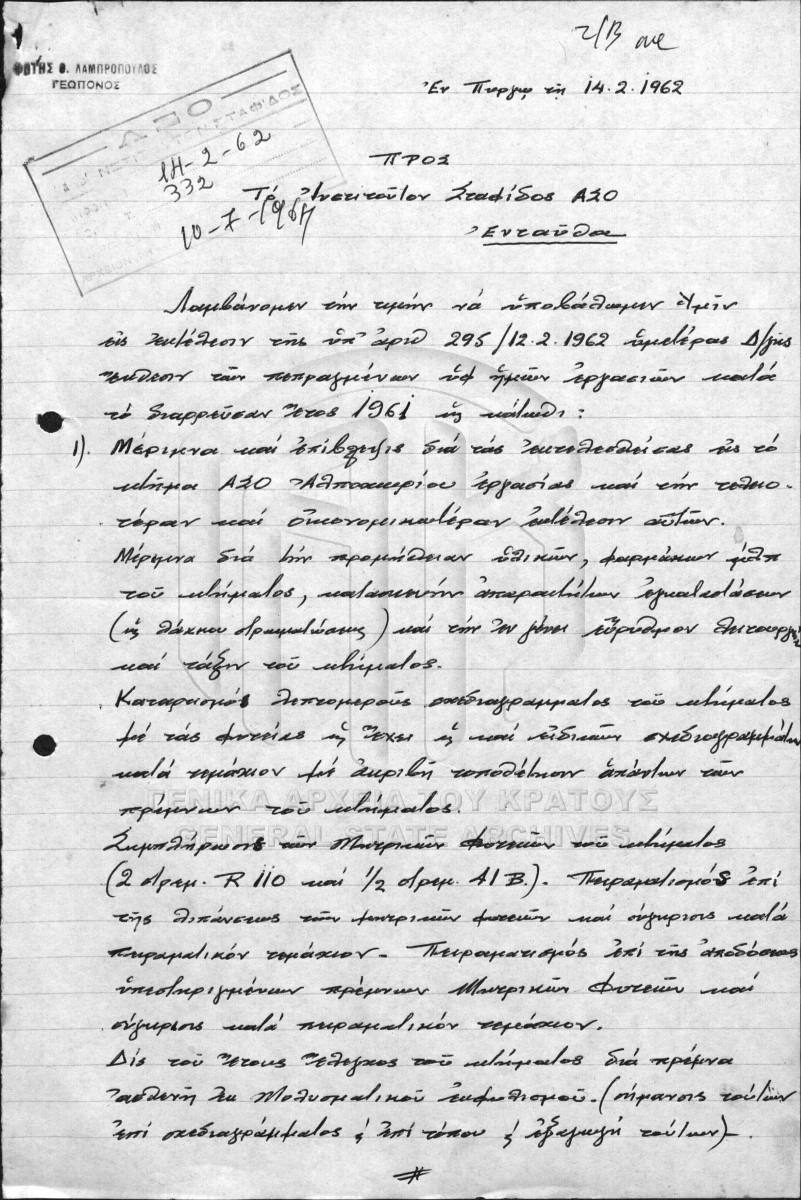 2/B
ΦΩΤΗΣ Θ. ΛΑΜΠΡΟΠΟΥΛΟΣ
ΓΕΩΠΟΝΟΣ
Ἐν Πύργῳ τῇ 14.2.1962
ΑΣΟ
14-2-62
332
10-7-1964
ΠΡΟΣ
Τὸ Ἰνστιτοῦτον Σταφίδος ΑΣΟ
Ἐνταῦθα
Λαμβάνομεν τὴν τιμὴν νὰ ὑποβάλωμεν Ὑμῖν
εἰς ἐκτέλεσιν τῆς ὑπ' ἀριθ 295/12.2.1962 ὑμετέρας Δ/γῆς
ἔκθεσιν τῶν πεπραγμένων ὑφ ἡμῶν ἐργασιῶν κατὰ
τὸ διαρρεῦσαν ἔτος 1961 ὡς κάτωθι:
1). Μέριμνα καὶ ἐπίβλεψις διὰ τὰς ἐκτελεσθείσας εἰς τὸ
κτῆμα ΑΣΟ Ἀλποχωρίου ἐργασίας καὶ τὴν τελειο-
τέραν καὶ οἰκονομικωτέραν ἐκτέλεσιν αὐτῶν.
Μέριμνα διὰ τὴν προμήθειαν ὑλικῶν, φαρμάκων κλπ
τοῦ κτήματος, κατασκευὴν ἀπαραιτήτων ἐγκαταστάσεων
(ὡς λάκκου στρωματώσεως) καὶ τὴν ἐν γένει εὔρυθμον λειτουργίαν
καὶ τάξιν τοῦ κτήματος.
Καταρτισμὸς λεπτομεροῦς σχεδιαγράμματος τοῦ κτήματος
μὲ τὰς φυτείας ὡς ἔχει ὡς καὶ εἰδικῶν σχεδιαγραμμάτων
κατὰ τεμάχιον μὲ ἀκριβῆ τοποθέτησιν ἁπάντων τῶν
πρέμνων τοῦ κτήματος.
ΓΕΝΙΚΑ ΑΡΧΕΙΑ ΤΟΥ ΚΡΑΤΟΥΣ
GENERAL STATE ARCHIVES
Συμπλήρωσις τῶν Μητρικῶν Φυτειῶν τοῦ κτήματος
(2 στρεμ. R 110 καὶ 1/2 στρεμ. 41 B.). Πειραματισμὸς ἐπὶ
τῆς λιπάνσεως τῶν μητρικῶν φυτειῶν καὶ σύγκρισις κατὰ
πειραματικὸν τεμάχιον. Πειραματισμὸς ἐπὶ τῆς ἀποδόσεως
ὑπεστηριγμένων πρέμνων Μητρικῶν Φυτειῶν καὶ
σύγκρισις κατὰ πειραματικὸν τεμάχιον.
Δὶς τοῦ ἔτους ἔλεγχος τοῦ κτήματος διὰ πρέμνα
ἀσθενῆ ἐκ Μολυσματικοῦ ἐκφυλισμοῦ. (σήμανσις τούτων
ἐπὶ σχεδιαγράμματος & ἐπὶ τόπου & ἐξαγωγὴ τούτων).